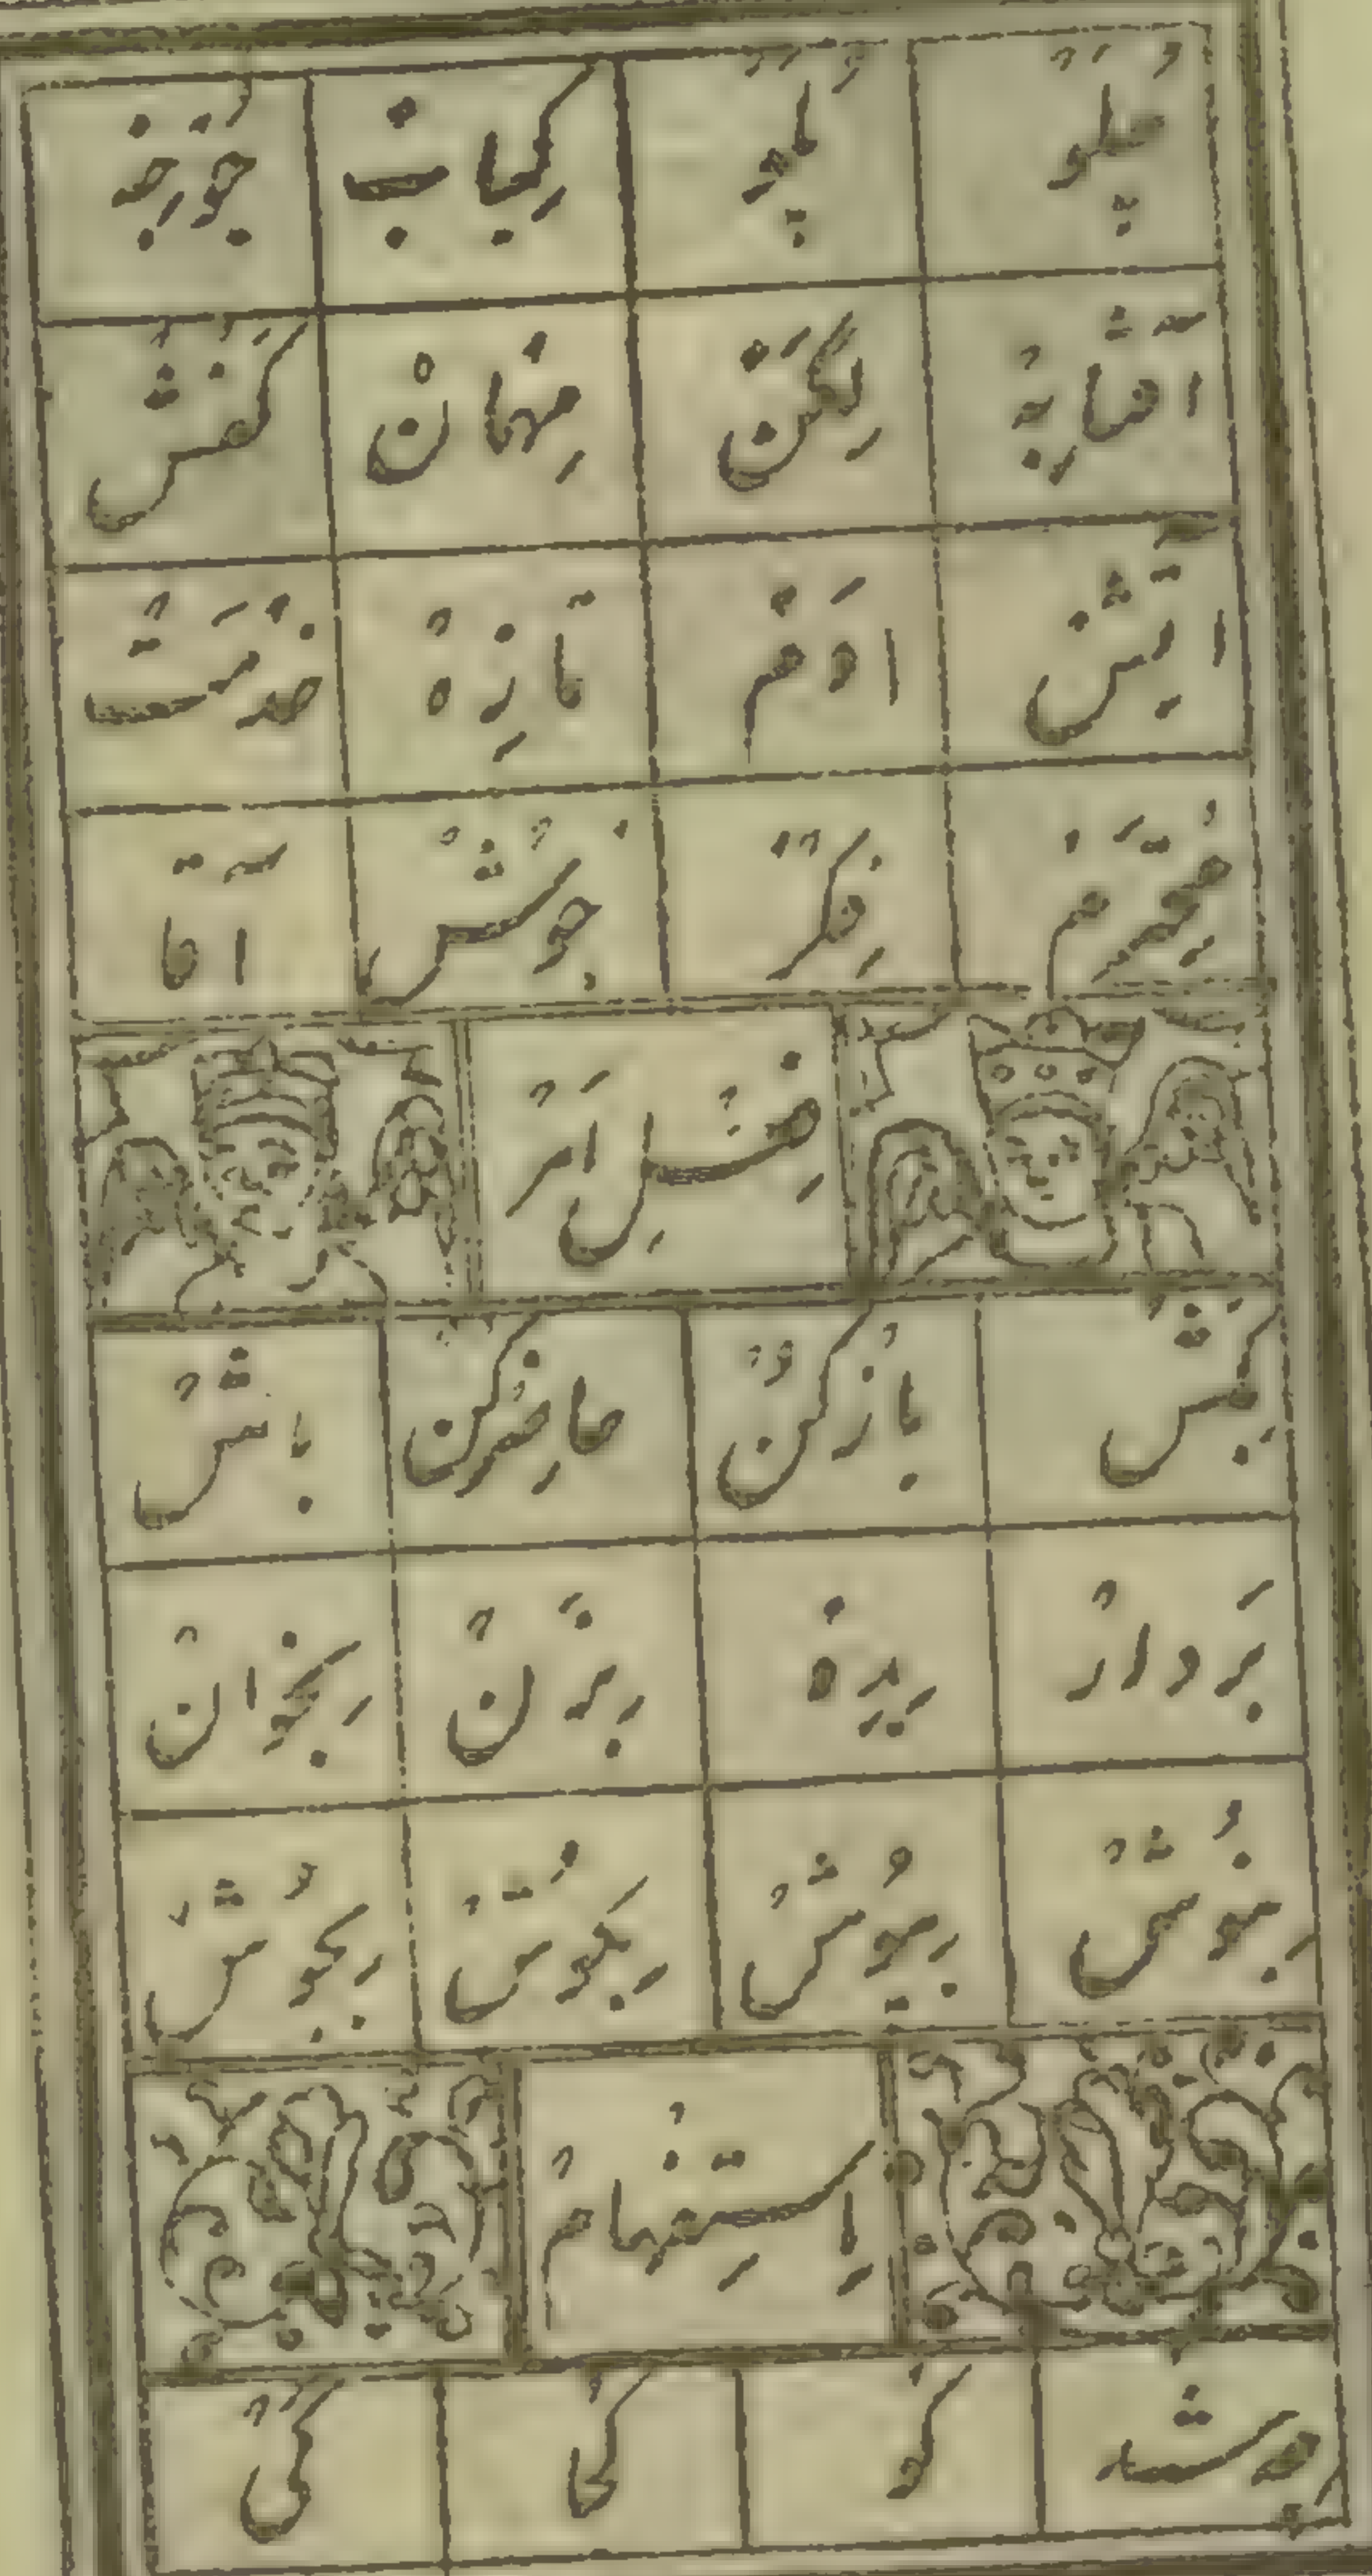 پلو کباب جوجه
آفتابه لگن مهمان کفش
آتش آدم تازه خدمت
محترم فکر آقا
فعل امر
بکش باز کن حاضر کن باش
بردار بده بزن بخوان
بنوش بپوش بکوش بجوش
استفهام
چه شد کو کجا کی